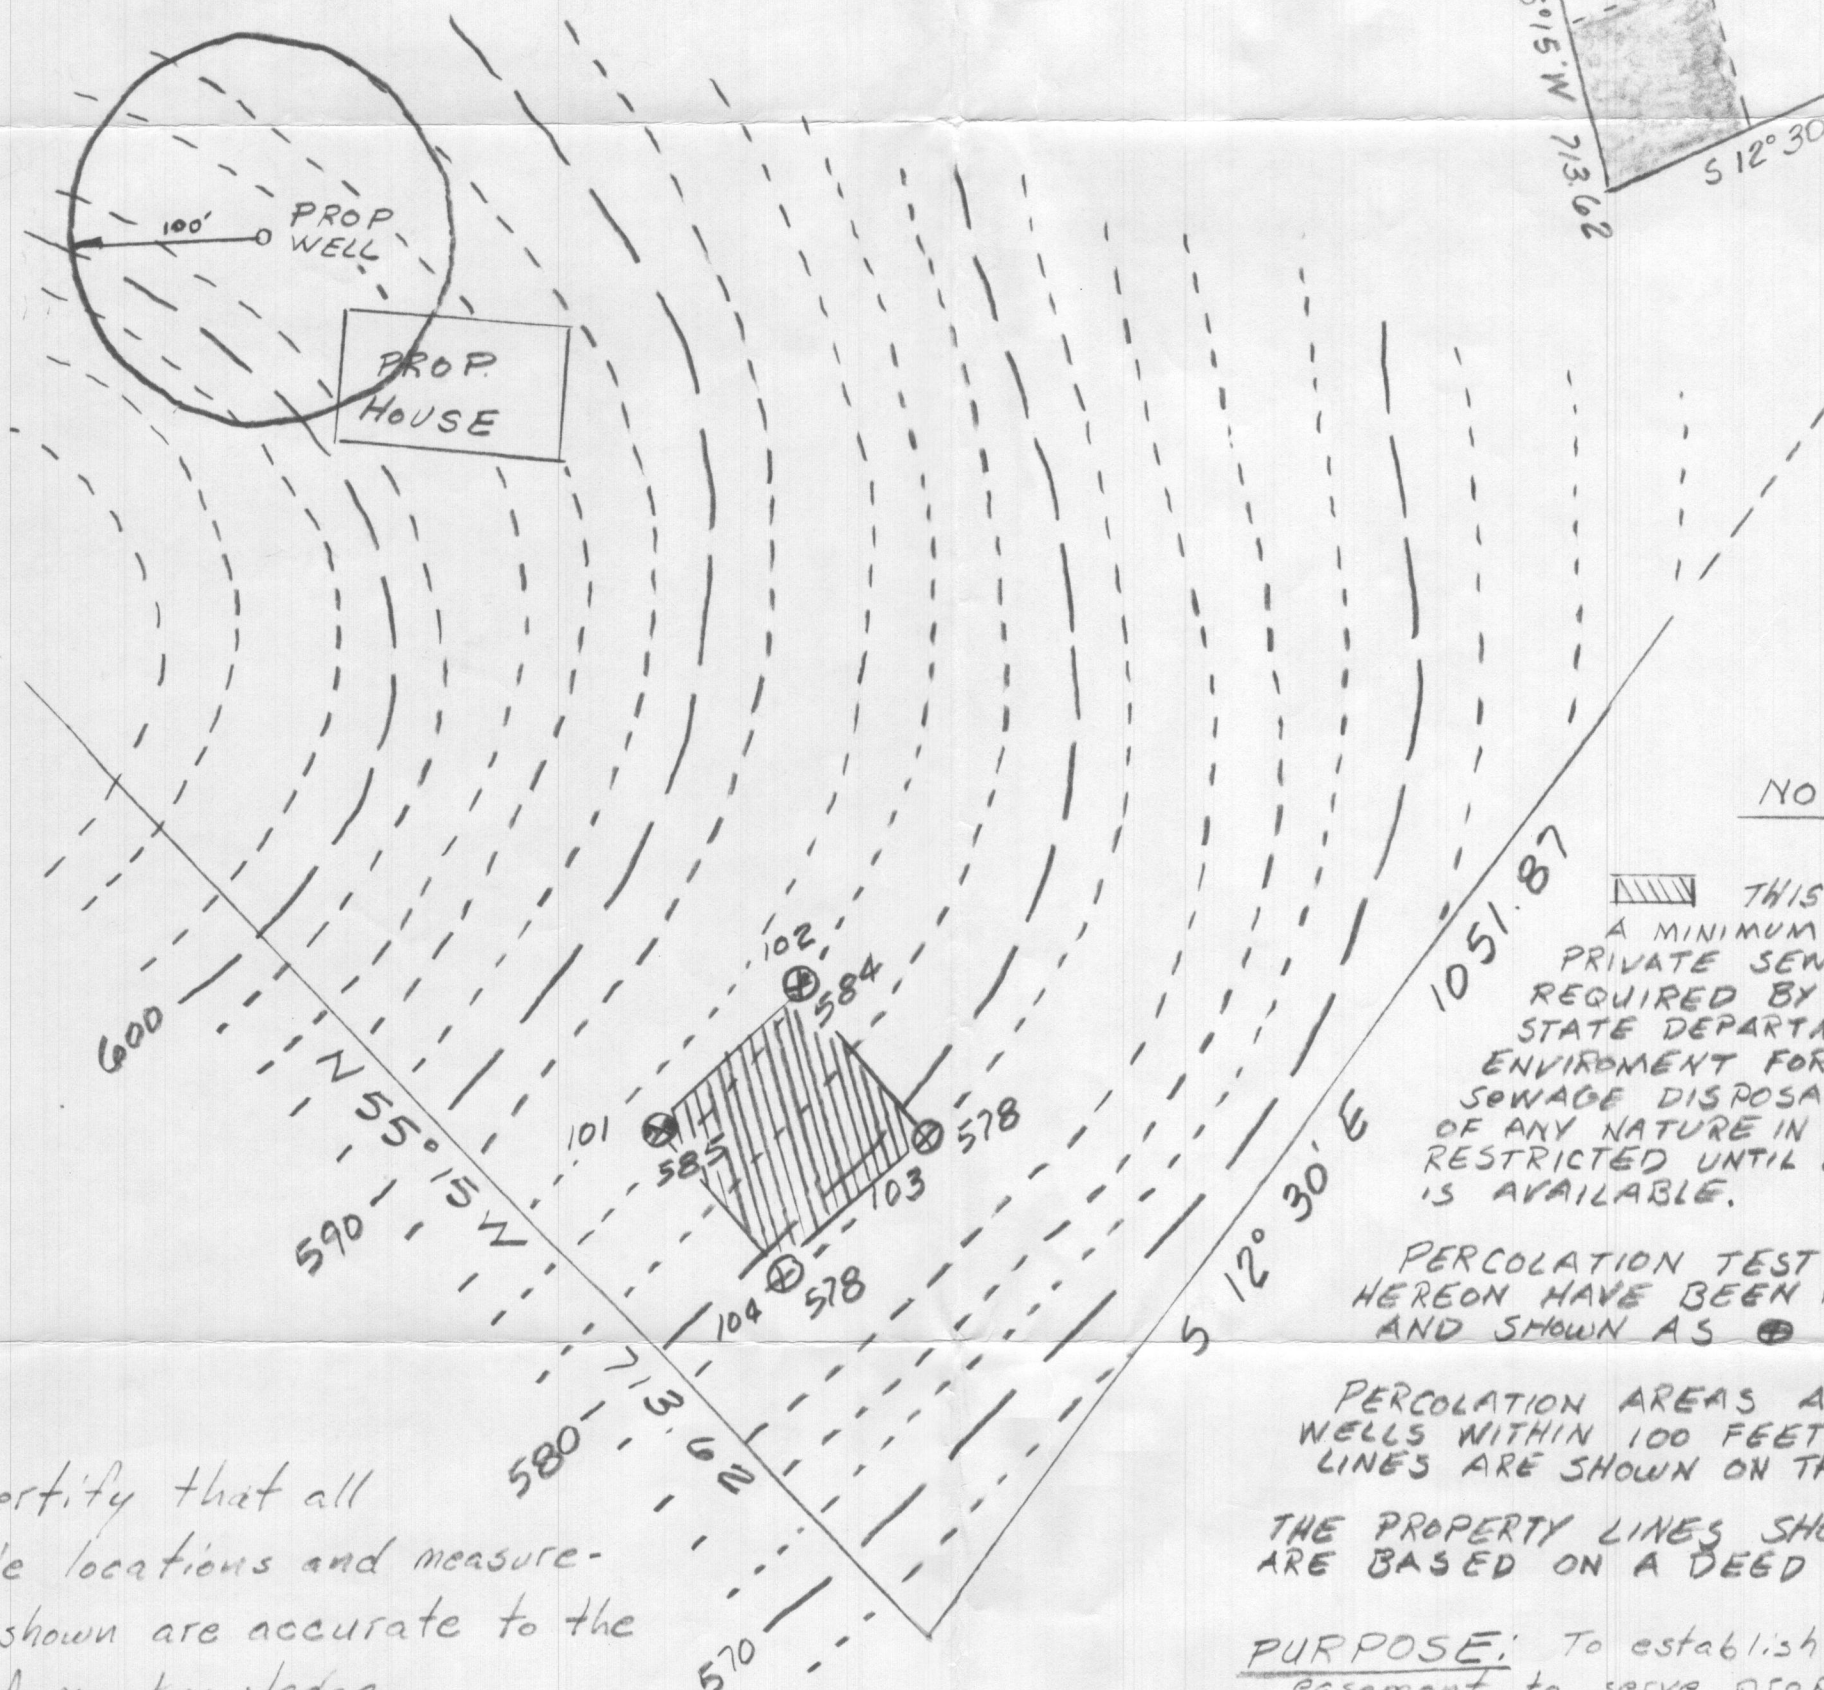 100'
PROP
WELL
PROP.
HOUSE
5°15'W 713.62
S 12° 30
102
584
101
585
578
103
104
578
600
590
580
570
N 55° 15 W
713.62
S 12° 30' E
1051.87
NO
THIS
A MINIMUM
PRIVATE SEW
REQUIRED BY
STATE DEPARTM
ENVIROMENT FOR
SEWAGE DISPOSA
OF ANY NATURE IN
RESTRICTED UNTIL
IS AVAILABLE.
PERCOLATION TEST
HEREON HAVE BEEN
AND SHOWN AS
PERCOLATION AREAS A
WELLS WITHIN 100 FEET
LINES ARE SHOWN ON TH
THE PROPERTY LINES SHO
ARE BASED ON A DEED
PURPOSE: To establish
easement to serve prop
ertify that all
e locations and measure-
shown are accurate to the